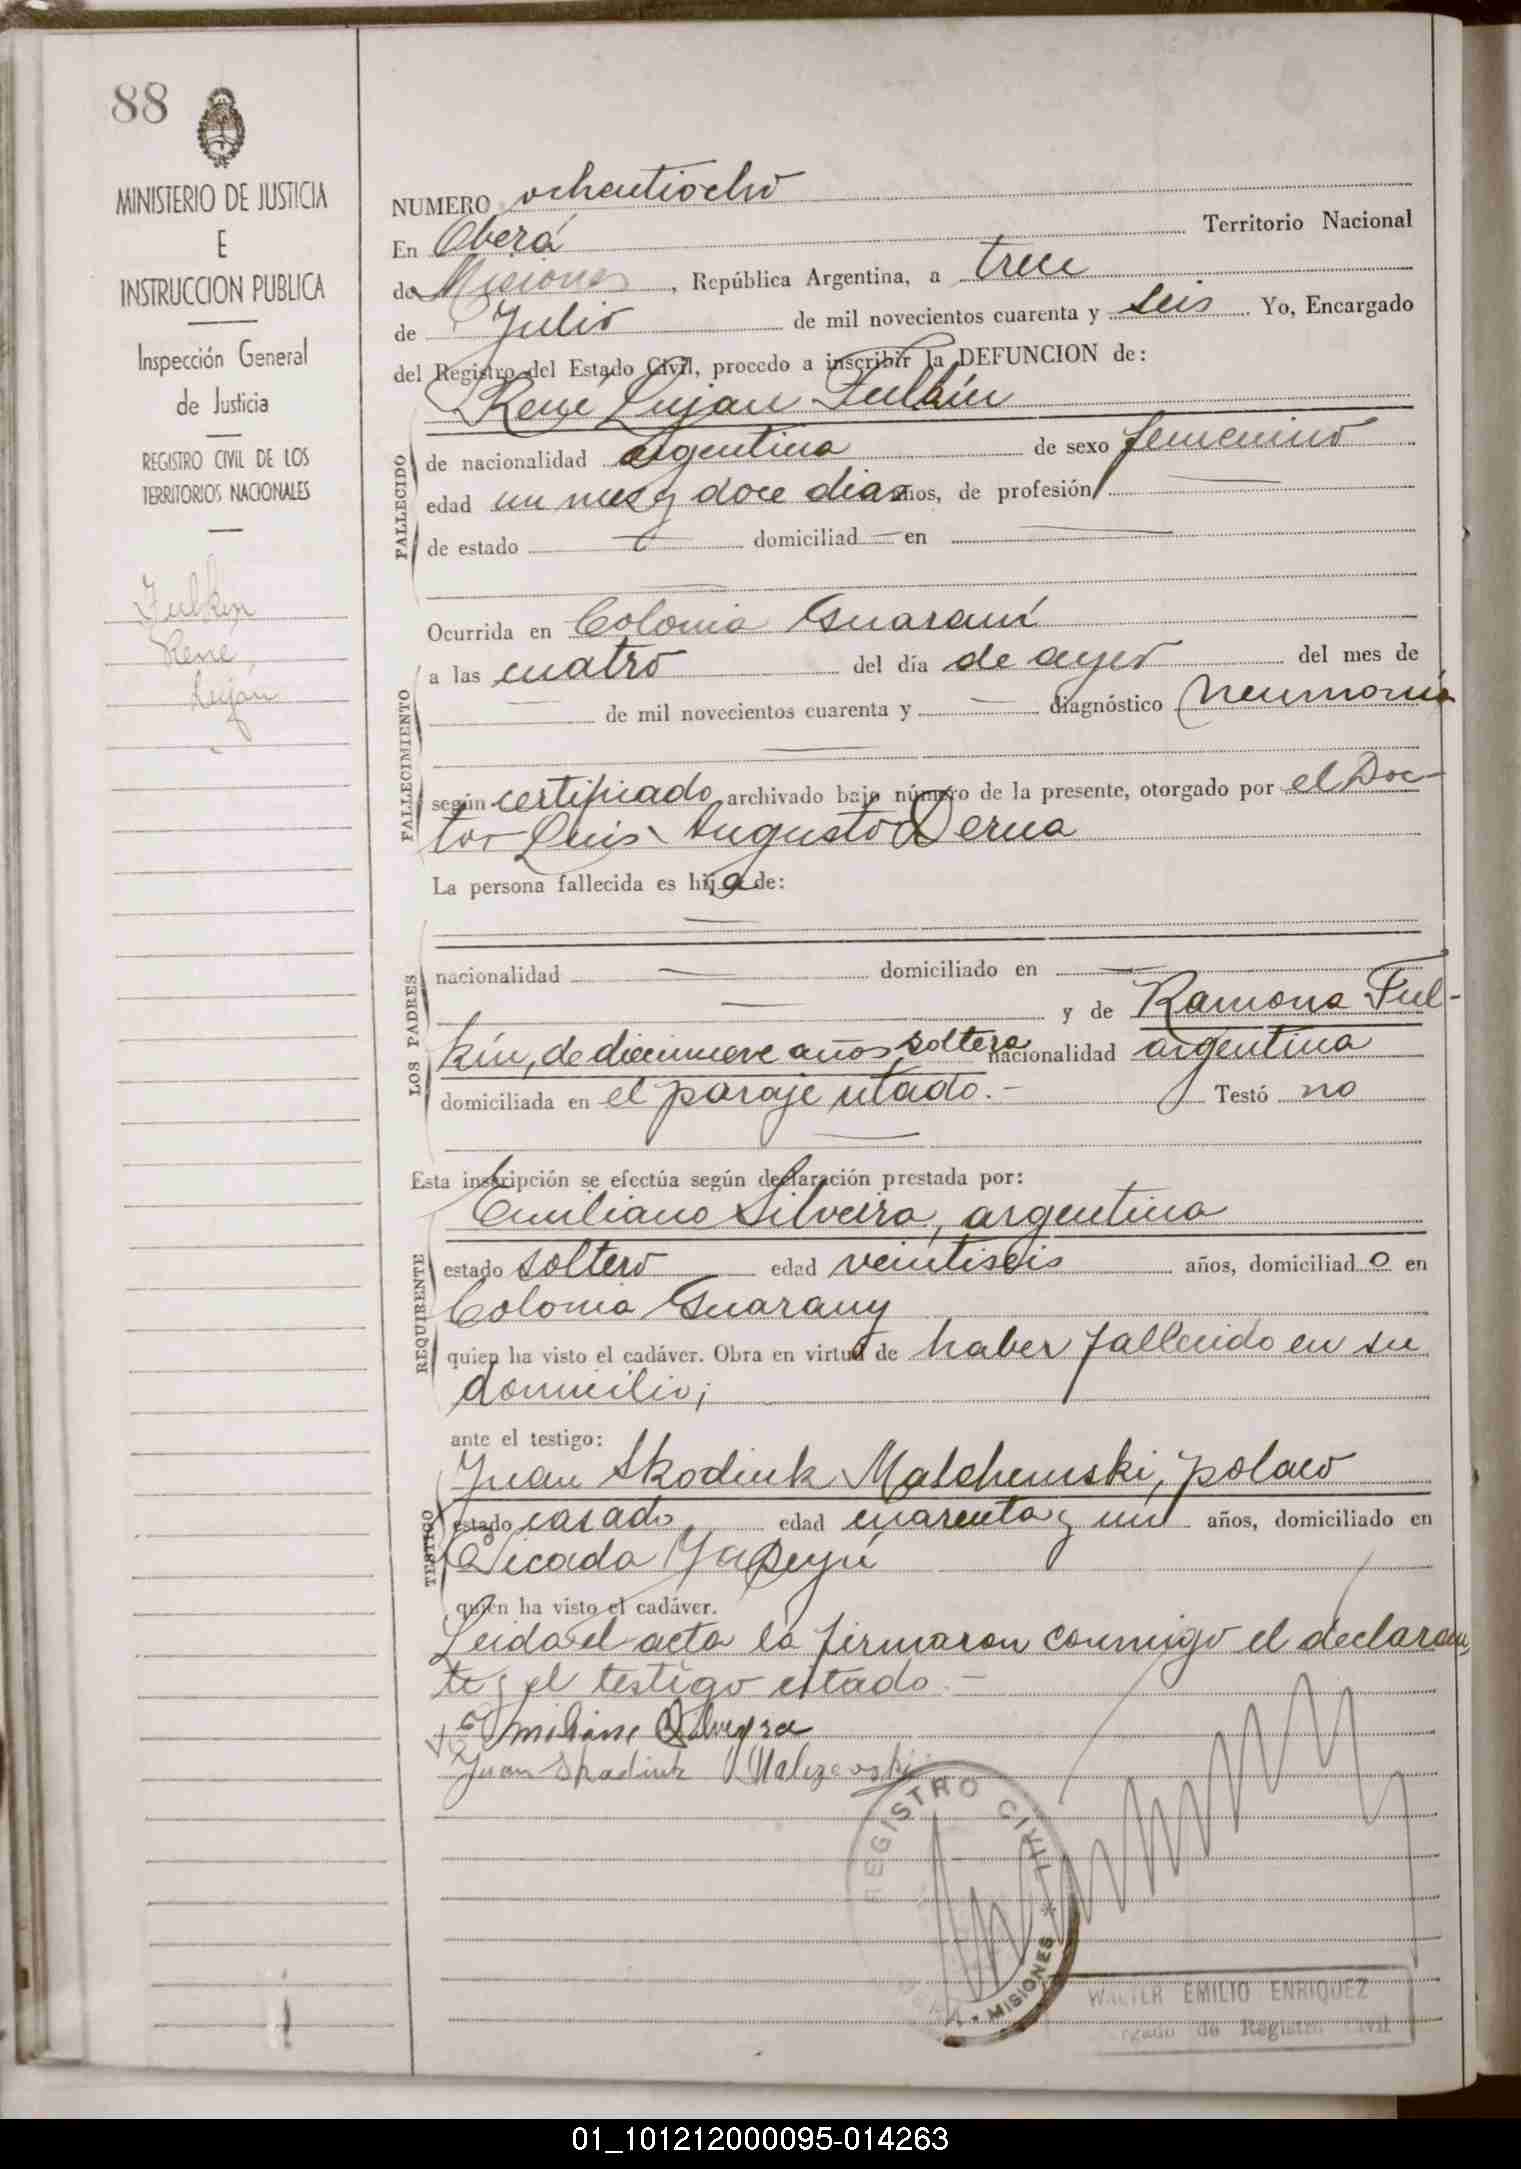 88
MINISTERIO DE JUSTICIA
E
INSTRUCCION PUBLICA
Inspección General
de Justicia
REGISTRO CIVIL DE LOS
TERRITORIOS NACIONALES
Fulkin
Rene
Lujan
NUMERO ochentiocho
En Oberá Territorio Nacional
de Misiones, República Argentina, a trece
de Julio de mil novecientos cuarenta y seis. Yo, Encargado
del Registro del Estado Civil, procedo a inscribir la DEFUNCION de:
René Lujan Fulkin
FALLECIDO
de nacionalidad argentina de sexo femenino
edad un mes y doce dias años, de profesión
de estado domiciliad en
Ocurrida en Colonia Guaraní
FALLECIMIENTO
a las cuatro del día de ayer del mes de
de mil novecientos cuarenta y diagnóstico neumonia
según certificado archivado bajo número de la presente, otorgado por el Doc-
tor Luis Augusto Derna
La persona fallecida es hija de:
LOS PADRES
nacionalidad domiciliado en
y de Ramona Ful-
kin, de diecinueve años soltera nacionalidad argentina
domiciliada en el paraje citado.- Testó no
Esta inscripción se efectúa según declaración prestada por:
Emiliano Silveira, argentina
REQUIRENTE
estado soltero edad veintiseis años, domiciliado en
Colonia Guarany
quien ha visto el cadáver. Obra en virtud de haber fallecido en su
domicilio;
ante el testigo:
Juan Skodiuk Malchemski, polaco
TESTIGO
estado casado edad cuarenta y un años, domiciliado en
Picada Yapeyú
quien ha visto el cadáver.
Leida el acta la firmaron conmigo el declaran
te y el testigo citado.-
Emiliano Silveyra
Juan Skadiuk
REGISTRO CIVIL * MISIONES
WALTER EMILIO ENRIQUEZ
de Registro Civil
01_101212000095-014263